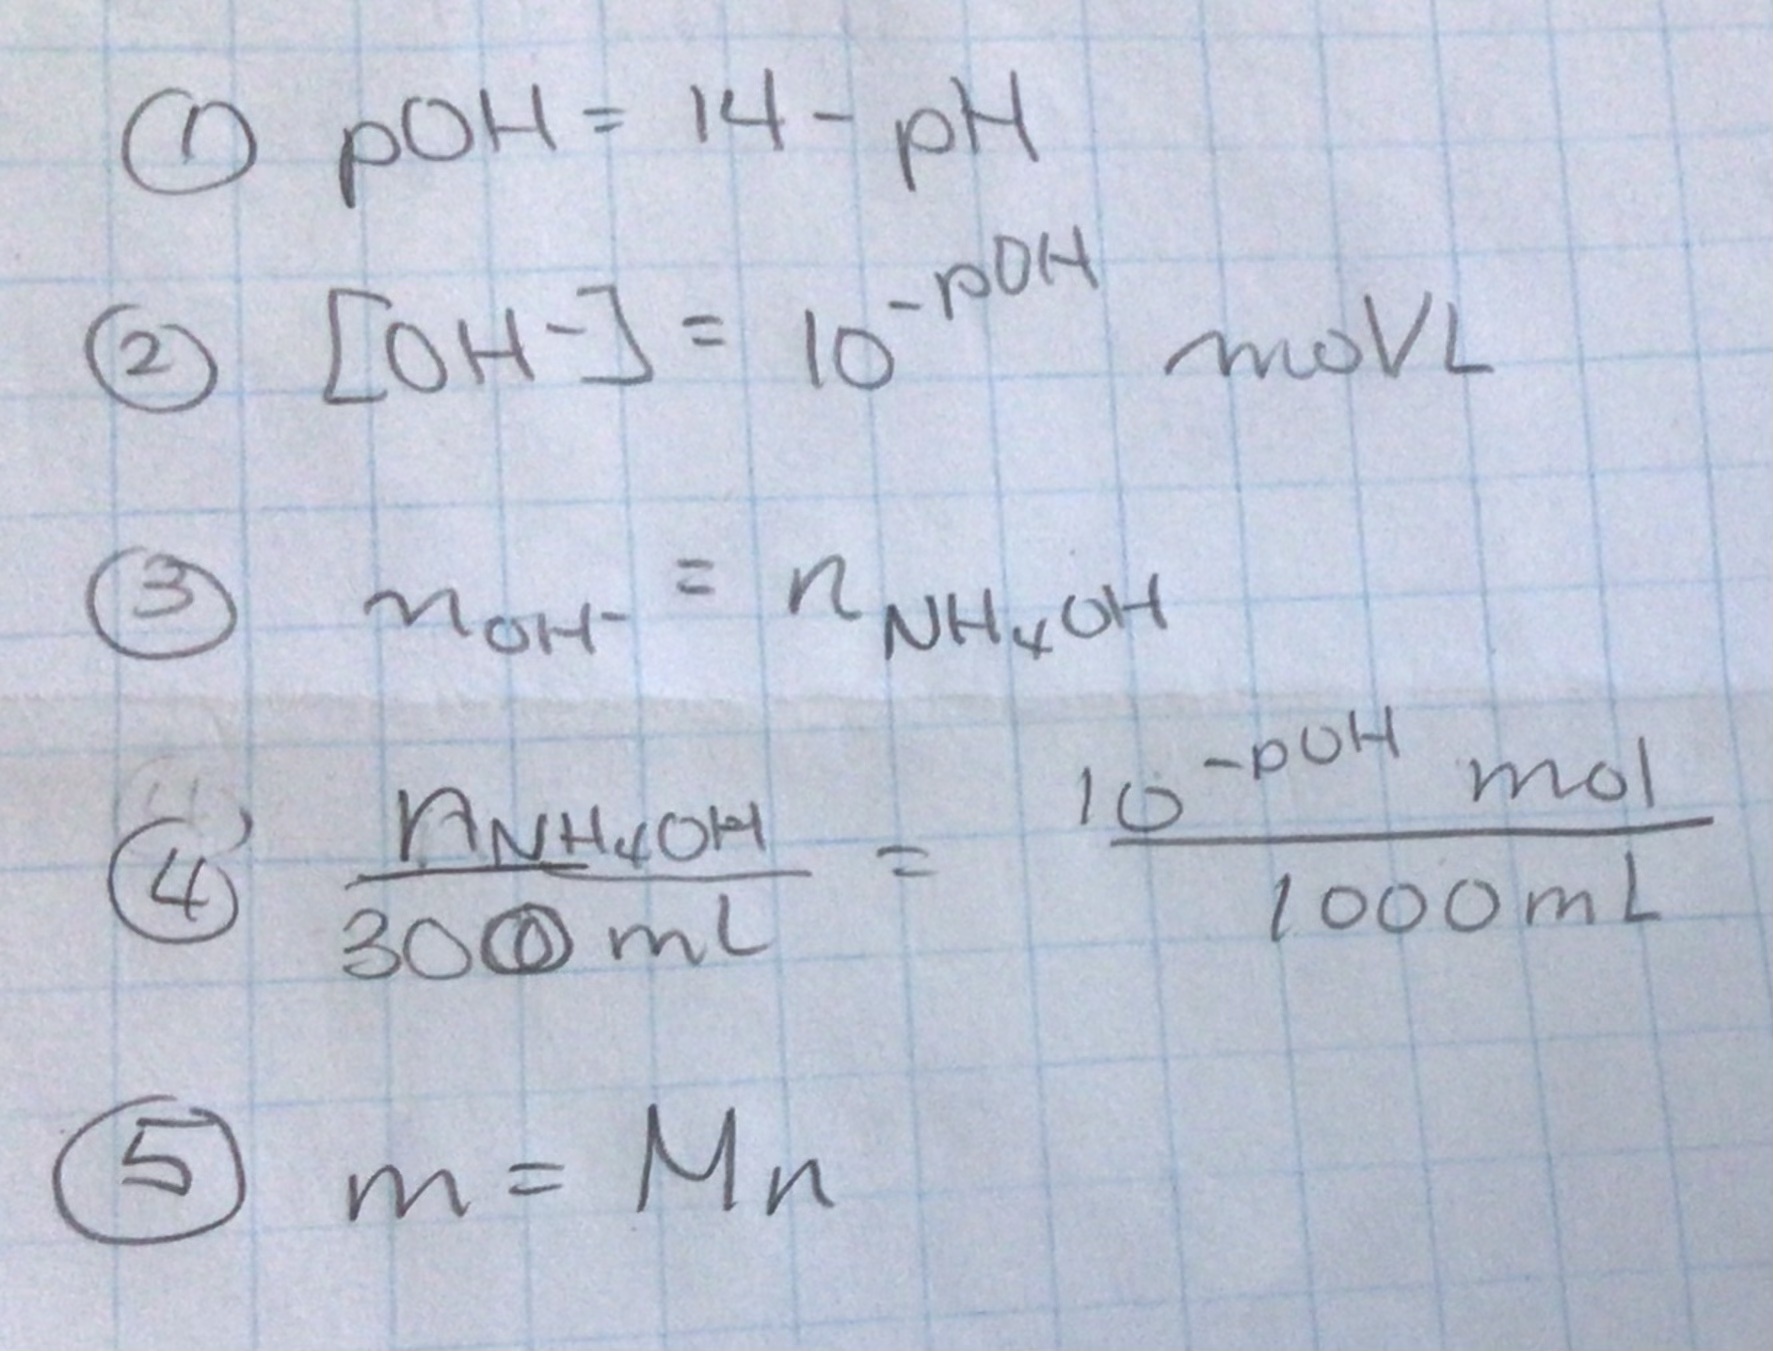 ① pOH = 14 - pH
② [OH⁻] = 10^-pOH mol/L
③ n OH⁻ = n NH₄OH
④ n NH₄OH / 300 mL = 10^-pOH mol / 1000 mL
⑤ m = Mn